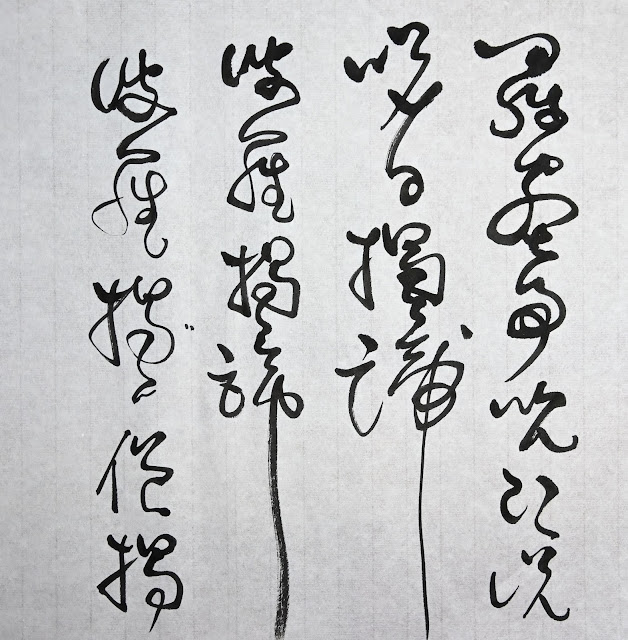 羅蜜多咒即說
咒曰揭諦
波羅揭諦
波羅揭僧揭